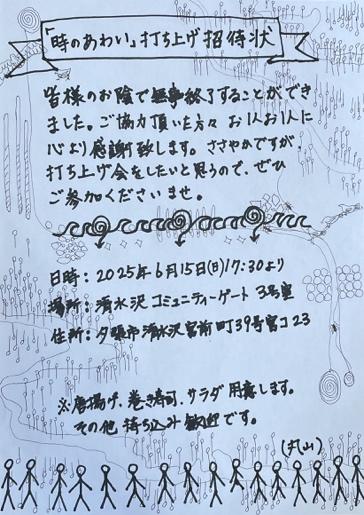 「時のあわい」打ち上げ招待状
皆様のお陰で無事終了することができ
ました。ご協力頂いた方々 お1人お1人に
心より感謝致します。ささやかですが、
打ち上げ会をしたいと思うので、ぜひ
ご参加くださいませ。
日時: 2025年6月15日(日)17:30より
場所: 清水沢コミュニティーゲート 3号室
住所: 夕張市清水沢宮前町39号宮コ23
※唐揚げ、巻き寿司、サラダ用意します。
その他、持ち込み歓迎です。
(丸山)